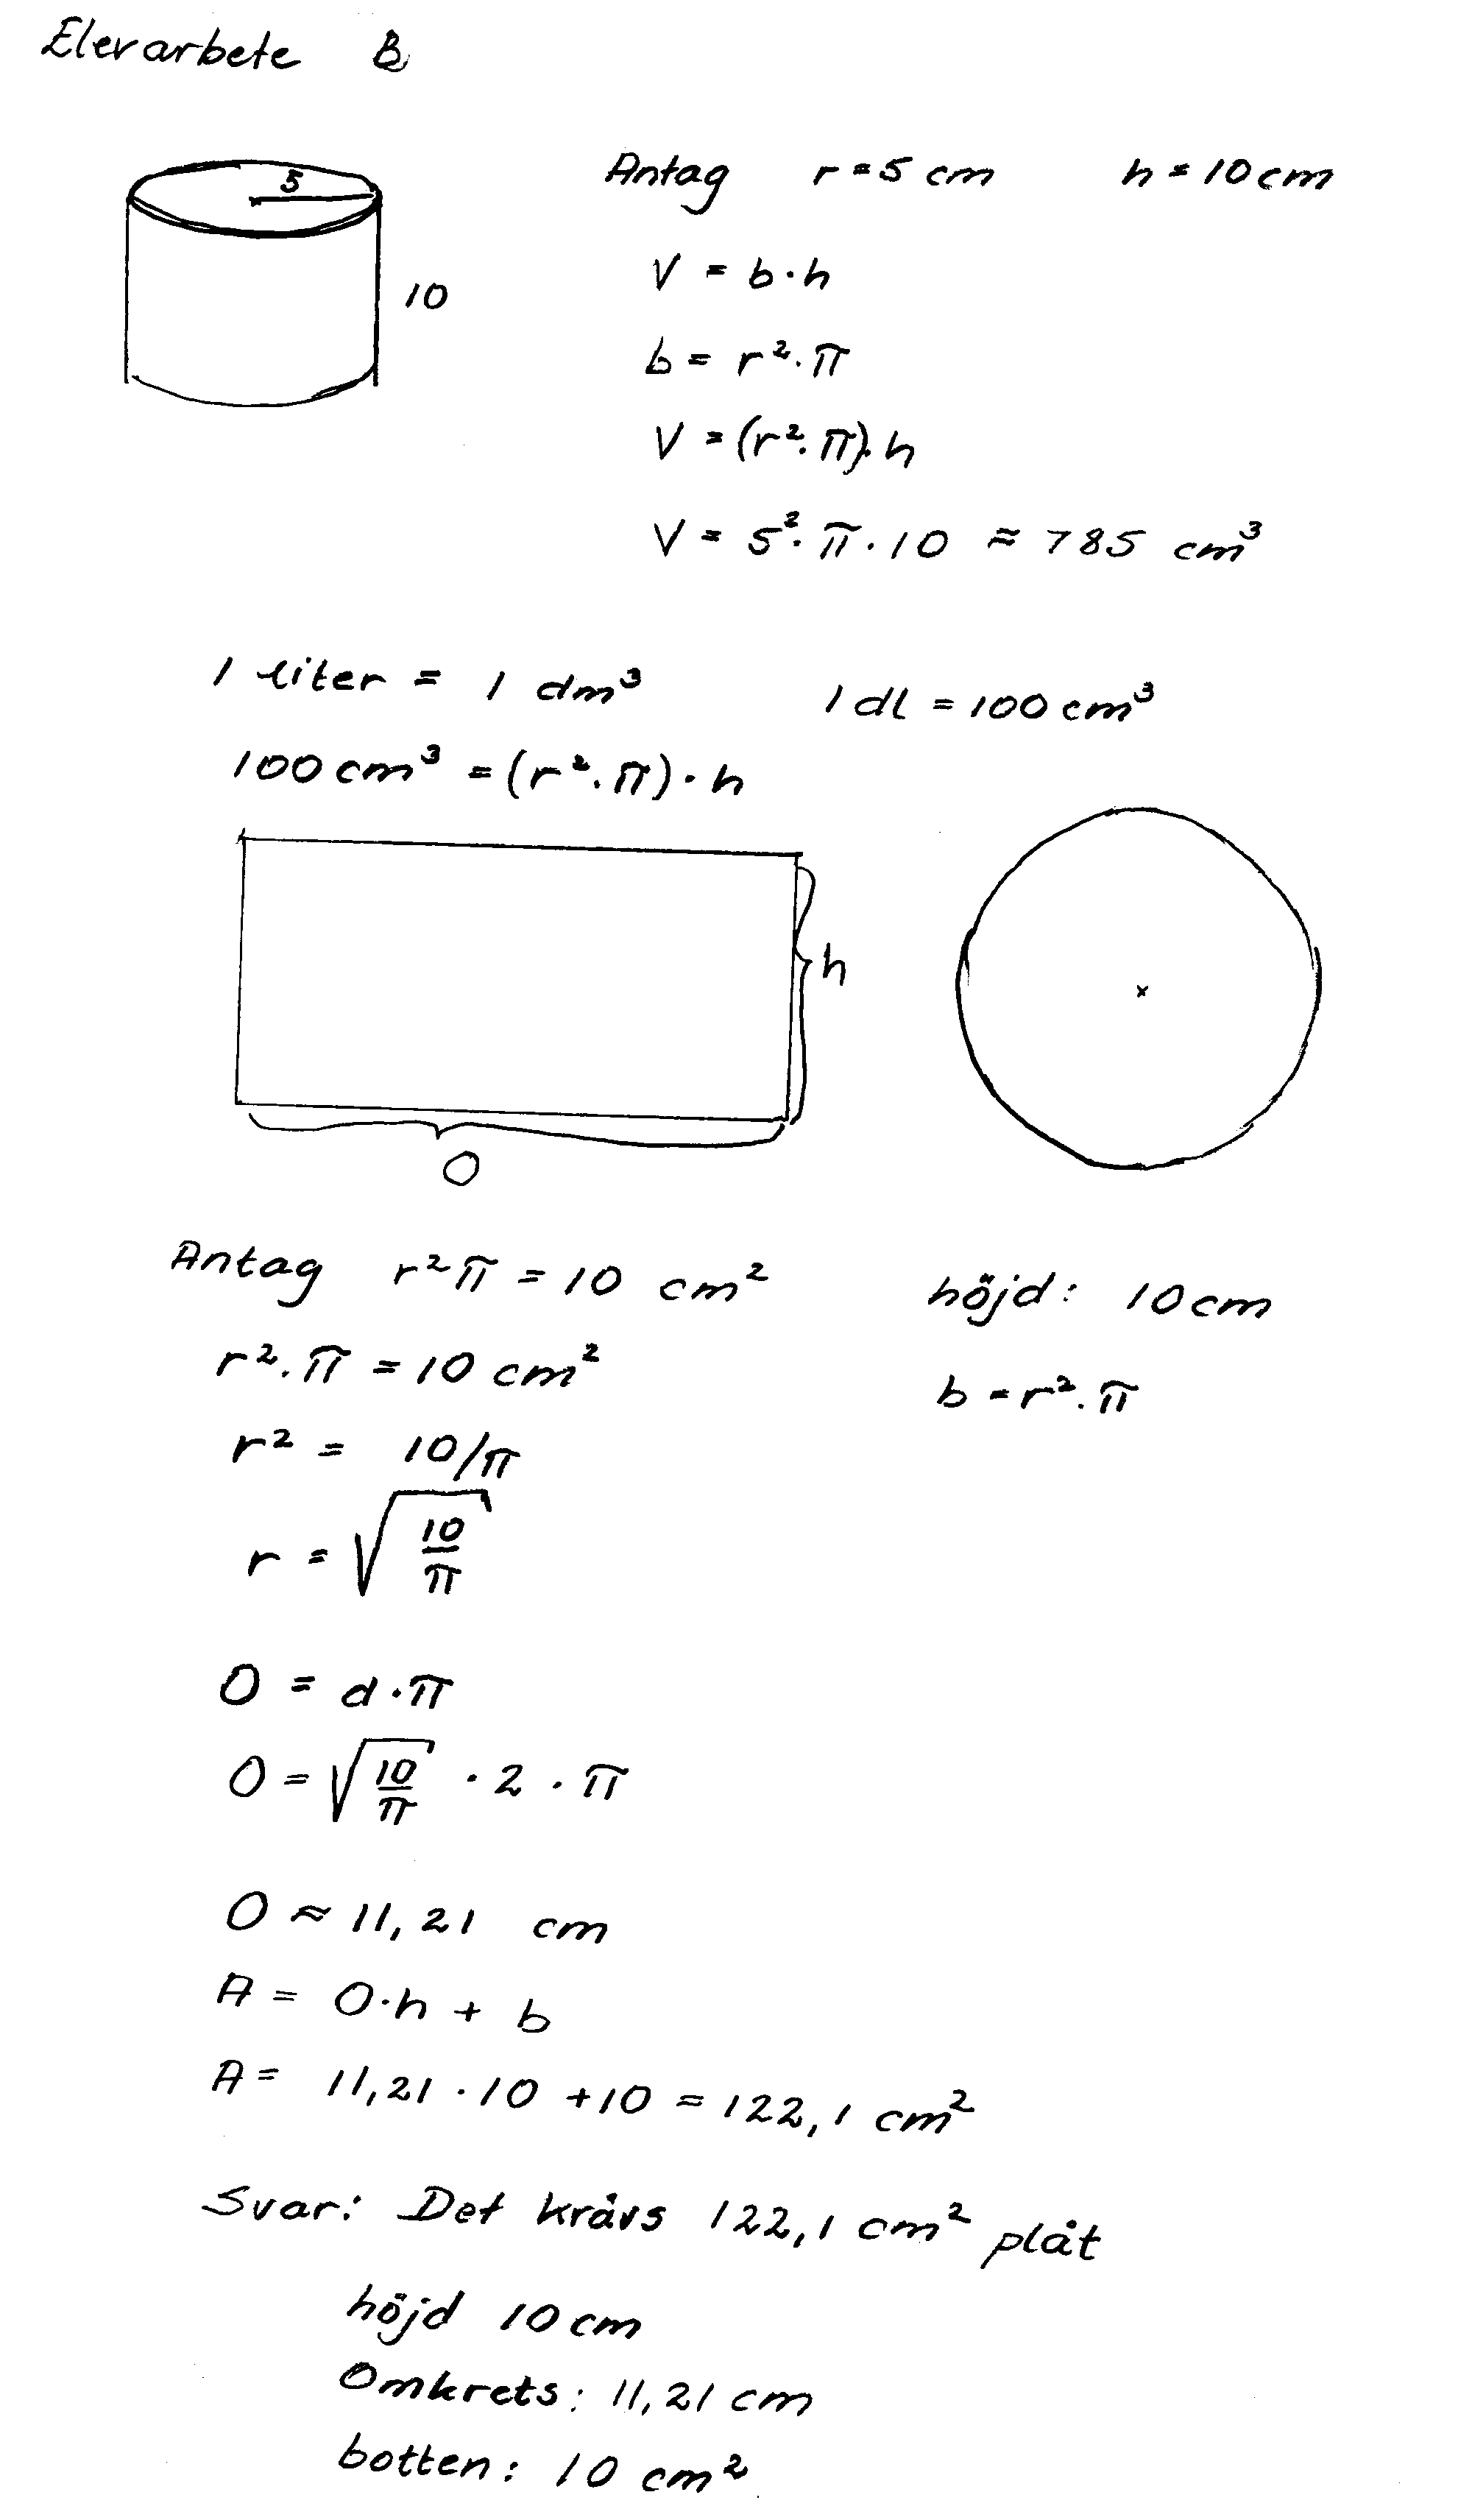 Elevarbete B
5
10
Antag r = 5 cm h = 10 cm
V = b · h
b = r² · π
V = (r² · π) · h
V = 5² · π · 10 ≈ 785 cm³
1 liter = 1 dm³ 1 dl = 100 cm³
100 cm³ = (r² · π) · h
h
x
O
Antag r²π = 10 cm² höjd: 10 cm
r² · π = 10 cm² b = r² · π
r² = 10/π
r = √(10/π)
O = d · π
O = √(10/π) · 2 · π
O ≈ 11,21 cm
A = O · h + b
A = 11,21 · 10 + 10 = 122,1 cm²
Svar: Det krävs 122,1 cm² plåt
höjd 10 cm
Omkrets: 11,21 cm
botten: 10 cm²